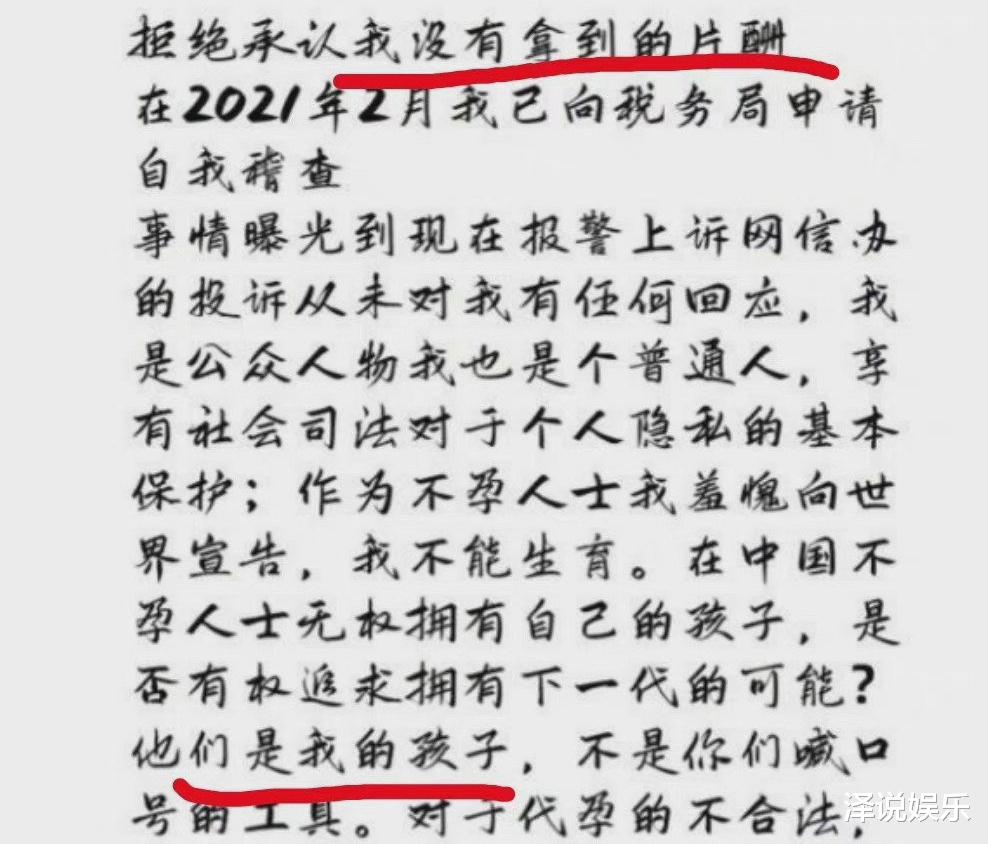 拒绝承认我没有拿到的片酬
在2021年2月我已向税务局申请
自我稽查
事情曝光到现在报警上诉网信办
的投诉从未对我有任何回应，我
是公众人物我也是个普通人，享
有社会司法对于个人隐私的基本
保护；作为不孕人士我羞愧向世
界宣告，我不能生育。在中国不
孕人士无权拥有自己的孩子，是
否有权追求拥有下一代的可能？
他们是我的孩子，不是你们喊口
号的工具。对于代孕的不合法，
泽说娱乐